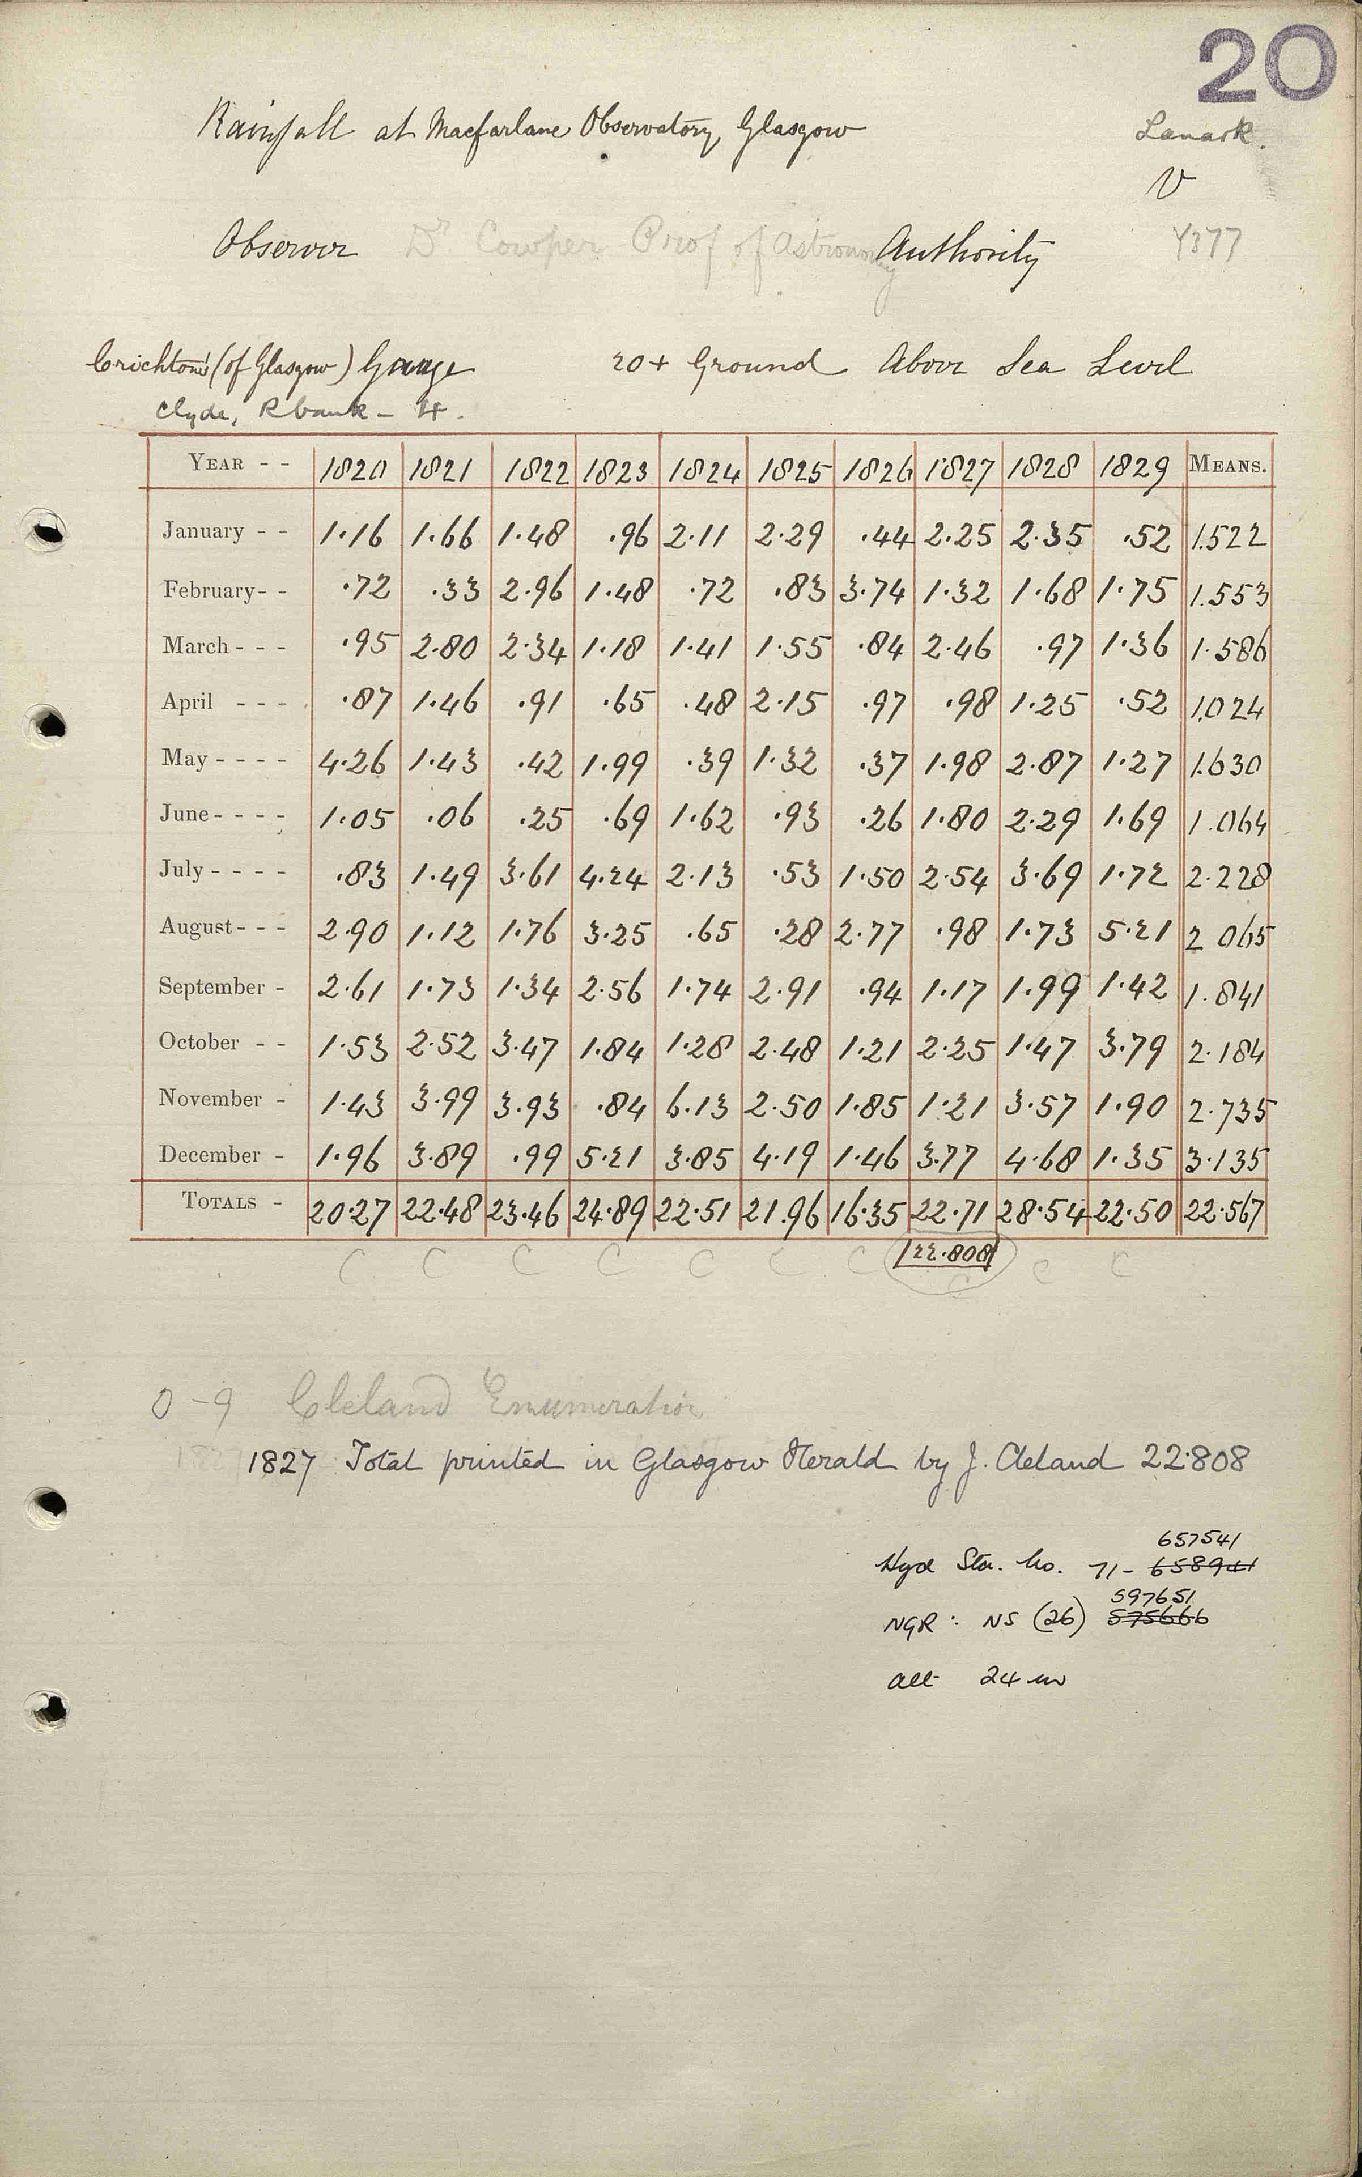 20
Rainfall at Macfarlane Observatory, Glasgow
Lanark.
V
Observer Dr. Cowper Prof of Astronomy Authority
4377
Crichton's (of Glasgow) Gauge 20+ Ground Above Sea Level
Clyde, Rbank - 4.
YEAR - - 1820 1821 1822 1823 1824 1825 1826 1827 1828 1829 MEANS.
January - - 1.16 1.66 1.48 .96 2.11 2.29 .44 2.25 2.35 .52 1.522
February- - .72 .33 2.96 1.48 .72 .83 3.74 1.32 1.68 1.75 1.553
March - - - .95 2.80 2.34 1.18 1.41 1.55 .84 2.46 .97 1.36 1.586
April - - - .87 1.46 .91 .65 .48 2.15 .97 .98 1.25 .52 1.024
May - - - - 4.26 1.43 .42 1.99 .39 1.32 .37 1.98 2.87 1.27 1.630
June - - - - 1.05 .06 .25 .69 1.62 .93 .26 1.80 2.29 1.69 1.064
July - - - - .83 1.49 3.61 4.24 2.13 .53 1.50 2.54 3.69 1.72 2.228
August - - - 2.90 1.12 1.76 3.25 .65 .28 2.77 .98 1.73 5.21 2 065
September - 2.61 1.73 1.34 2.56 1.74 2.91 .94 1.17 1.99 1.42 1.841
October - - 1.53 2.52 3.47 1.84 1.28 2.48 1.21 2.25 1.47 3.79 2.184
November - 1.43 3.99 3.93 .84 6.13 2.50 1.85 1.21 3.57 1.90 2.735
December - 1.96 3.89 .99 5.21 3.85 4.19 1.46 3.77 4.68 1.35 3.135
TOTALS - 20.27 22.48 23.46 24.89 22.51 21.96 16.35 22.71 28.54 22.50 22.567
22.808
C C C C C C C C C C
0-9 Cleland Enumeration
1827 Total printed in Glasgow Herald by J. Cleland 22.808
657541
Hyd Sta. No. 71- 658941
597651
NGR : NS (26) 575666
alt 24 m